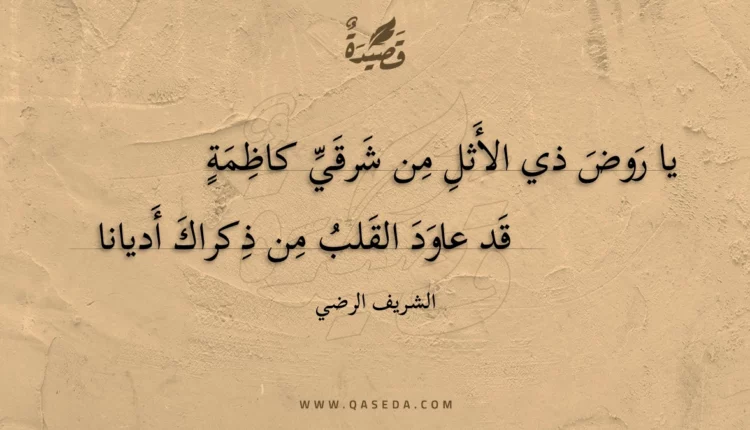 قَصيدَةٌ
يا رَوضَ ذي الأَثلِ مِن شَرقَيِّ كاظِمَةٍ
قَد عاوَدَ القَلبُ مِن ذِكراكَ أَديانا
الشريف الرضي
WWW.QASEDA.COM